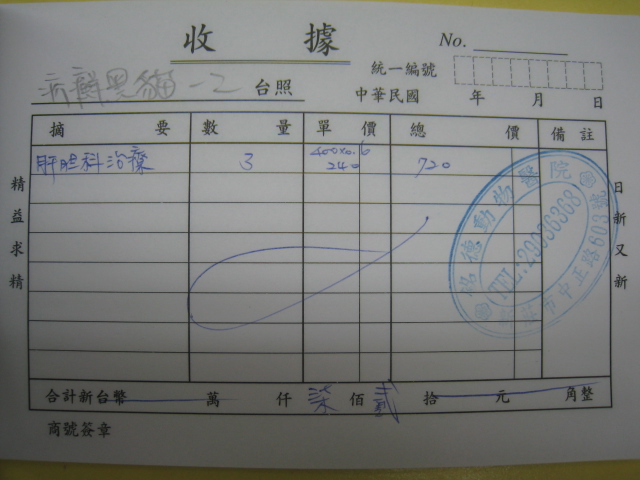 收 據
No.
統一編號
病 黑貓一乙 台照
中華民國 年 月 日
摘 要 數 量 單 價 總 價 備註
400x0.6
肝胆科治療 3 240 720
精益求精
日新又新
動物醫院
TEL:29036368
市中正路809號
合計新台幣 萬 仟 柒 佰 貳 拾 元 角整
商號簽章